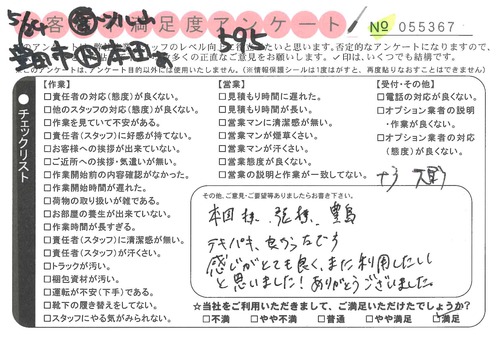 5/24
客 満足度アンケート
№ 055367
595
豊田市
本アンケートは、スタッフのレベル向上に役立てたいと思います。否定的なアンケートになりますので、
多くの正直なご意見をお願いします。✓印は、いくつでも結構です。
※このアンケートは、アンケート目的以外には使用いたしません。(※情報保護シールは1度はがすと、再度貼りなおすことはできません)
チェックリスト
【作業】
□責任者の対応(態度)が良くない。
□他のスタッフの対応(態度)が良くない。
□作業を見ていて不安がある。
□責任者(スタッフ)に好感が持てない。
□お客様への挨拶が出来ていない。
□ご近所への挨拶・気遣いが無い。
□作業開始前の内容確認がなかった。
□作業開始時間が遅れた。
□荷物の取り扱いが雑である。
□お部屋の養生が出来ていない。
□作業時間が長すぎる。
□責任者(スタッフ)に清潔感が無い。
□責任者(スタッフ)が汗くさい。
□トラックが汚い。
□梱包資材が汚い。
□運転が不安(下手)である。
□靴下の履き替えをしてない。
□スタッフにやる気がみられない。
【営業】
□見積もり時間に遅れた。
□見積もり時間が長い。
□営業マンに清潔感が無い。
□営業マンが煙草くさい。
□営業マンが汗くさい。
□営業態度が良くない。
□営業の説明と作業が一致してない。
【受付・その他】
□電話の対応が良くない。
□オプション業者の説明
・作業が良くない。
□オプション業者の対応
(態度)が良くない。
その他、ご意見・ご要望等ありましたらお書き下さい。
本田様、張様、豊島
テキパキ、
感じがとても良く、また利用したい
と思いました!ありがとうございました。
☆当社をご利用いただきまして、ご満足いただけたでしょうか?
□不満 □やや不満 □普通 □やや満足 □満足